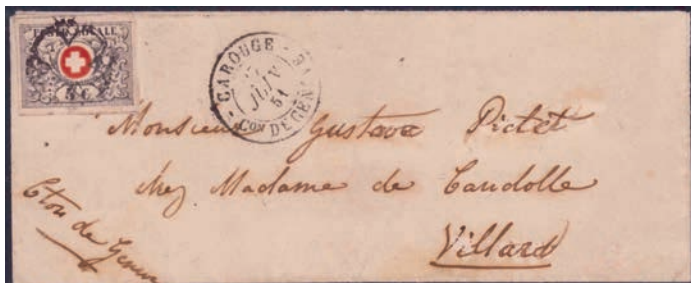 POSTE LOCALE
5 C
CAROUGE
JUIN
51
CON DE GENÈVE
Monsieur Gustave Pictet
chez Madame de Candolle
Cton de Genève
Villard